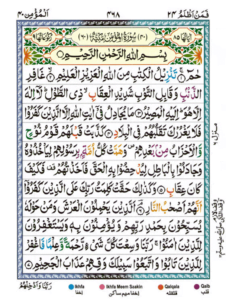 اَلْمُؤْمِن ٤٠
بِسْمِ اللّٰهِ الرَّحْمٰنِ الرَّحِيْمِ
حٰمٓ تَنْزِيْلُ الْكِتٰبِ مِنَ اللّٰهِ الْعَزِيْزِ الْعَلِيْمِ غَافِرِ
الذَّنْۢبِ وَقَابِلِ التَّوْبِ شَدِيْدِ الْعِقَابِ ذِى الطَّوْلِ لَاۤ اِلٰهَ
اِلَّا هُوَ اِلَيْهِ الْمَصِيْرُ مَا يُجَادِلُ فِيْۤ اٰيٰتِ اللّٰهِ اِلَّا الَّذِيْنَ كَفَرُوْا
فَلَا يَغْرُرْكَ تَقَلُّبُهُمْ فِى الْبِلَادِ كَذَّبَتْ قَبْلَهُمْ قَوْمُ نُوْحٍ
وَّالْاَحْزَابُ مِنْۢ بَعْدِهِمْ وَهَمَّتْ كُلُّ اُمَّةٍۭ بِرَسُوْلِهِمْ لِيَاْخُذُوْهُ
وَجَادَلُوْا بِالْبَاطِلِ لِيُدْحِضُوْا بِهِ الْحَقَّ فَاَخَذْتُهُمْ فَكَيْفَ
كَانَ عِقَابِ وَكَذٰلِكَ حَقَّتْ كَلِمَتُ رَبِّكَ عَلَى الَّذِيْنَ كَفَرُوْۤا
اَنَّهُمْ اَصْحٰبُ النَّارِ اَلَّذِيْنَ يَحْمِلُوْنَ الْعَرْشَ وَمَنْ حَوْلَهٗ
يُسَبِّحُوْنَ بِحَمْدِ رَبِّهِمْ وَيُؤْمِنُوْنَ بِهٖ وَيَسْتَغْفِرُوْنَ
لِلَّذِيْنَ اٰمَنُوْا رَبَّنَا وَسِعْتَ كُلَّ شَيْءٍ رَّحْمَةً وَّعِلْمًا فَاغْفِرْ
لِلَّذِيْنَ تَابُوْا وَاتَّبَعُوْا سَبِيْلَكَ وَقِهِمْ عَذَابَ الْجَحِيْمِ
رَبَّنَا وَاَدْخِلْهُمْ
Ikhfa Ikhfa Meem Saakin Qalqala Qalb